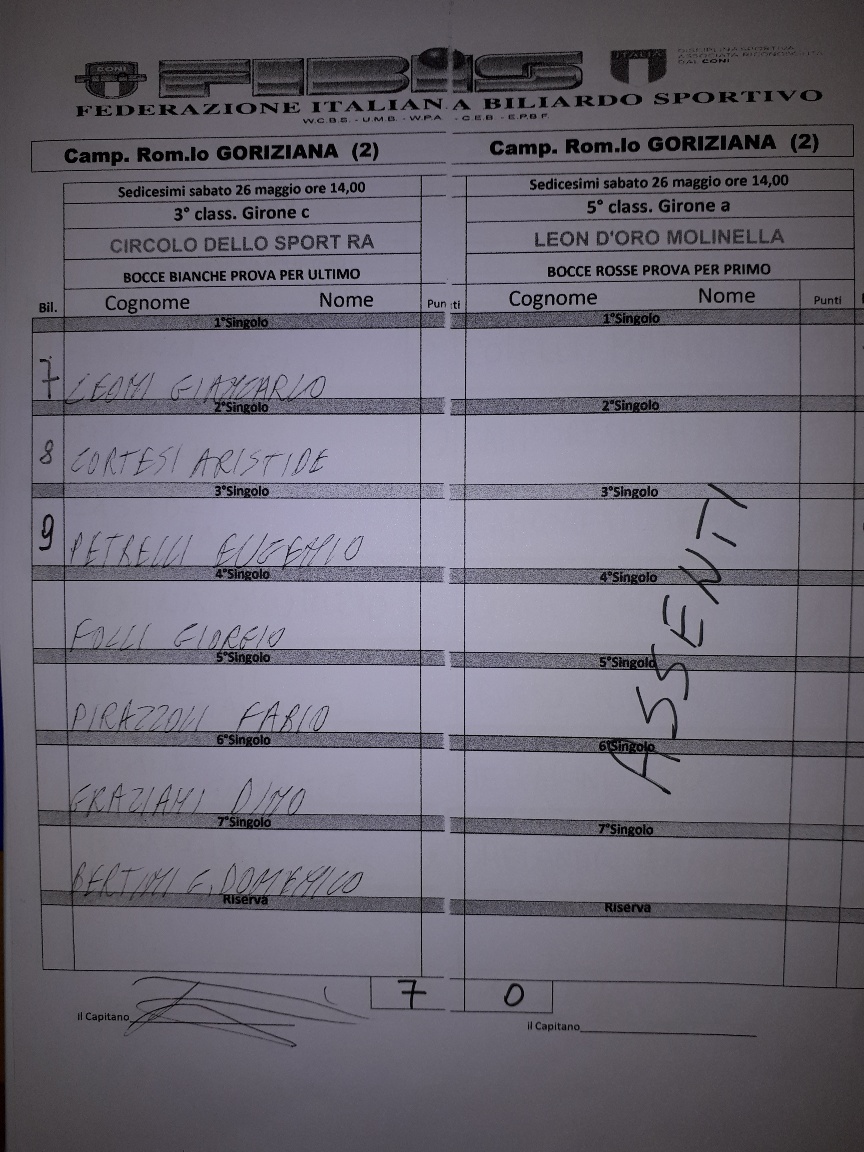 CONI
FIBiS
ITALIA
DISCIPLINA SPORTIVA
ASSOCIATA RICONOSCIUTA
DAL CONI
FEDERAZIONE ITALIANA BILIARDO SPORTIVO
W.C.B.S. - U.M.B. - W.P.A. - C.E.B. - E.P.B.F.
Camp. Rom.lo GORIZIANA (2) Camp. Rom.lo GORIZIANA (2)
Sedicesimi sabato 26 maggio ore 14,00 Sedicesimi sabato 26 maggio ore 14,00
3° class. Girone c 5° class. Girone a
CIRCOLO DELLO SPORT RA LEON D'ORO MOLINELLA
BOCCE BIANCHE PROVA PER ULTIMO BOCCE ROSSE PROVA PER PRIMO
Bil. Cognome Nome Punti Cognome Nome Punti
1°Singolo 1°Singolo
7 LEONI GIANCARLO
2°Singolo 2°Singolo
8 CORTESI ARISTIDE
3°Singolo 3°Singolo
9 PETRELLI EUGENIO
4°Singolo 4°Singolo
FOLLI GIORGIO
5°Singolo 5°Singolo
PIRAZZOLI FABIO
6°Singolo 6°Singolo
GRAZIANI DINO
7°Singolo 7°Singolo
BERTINI G. DOMENICO
Riserva Riserva
ASSENTI
7 0
il Capitano il Capitano